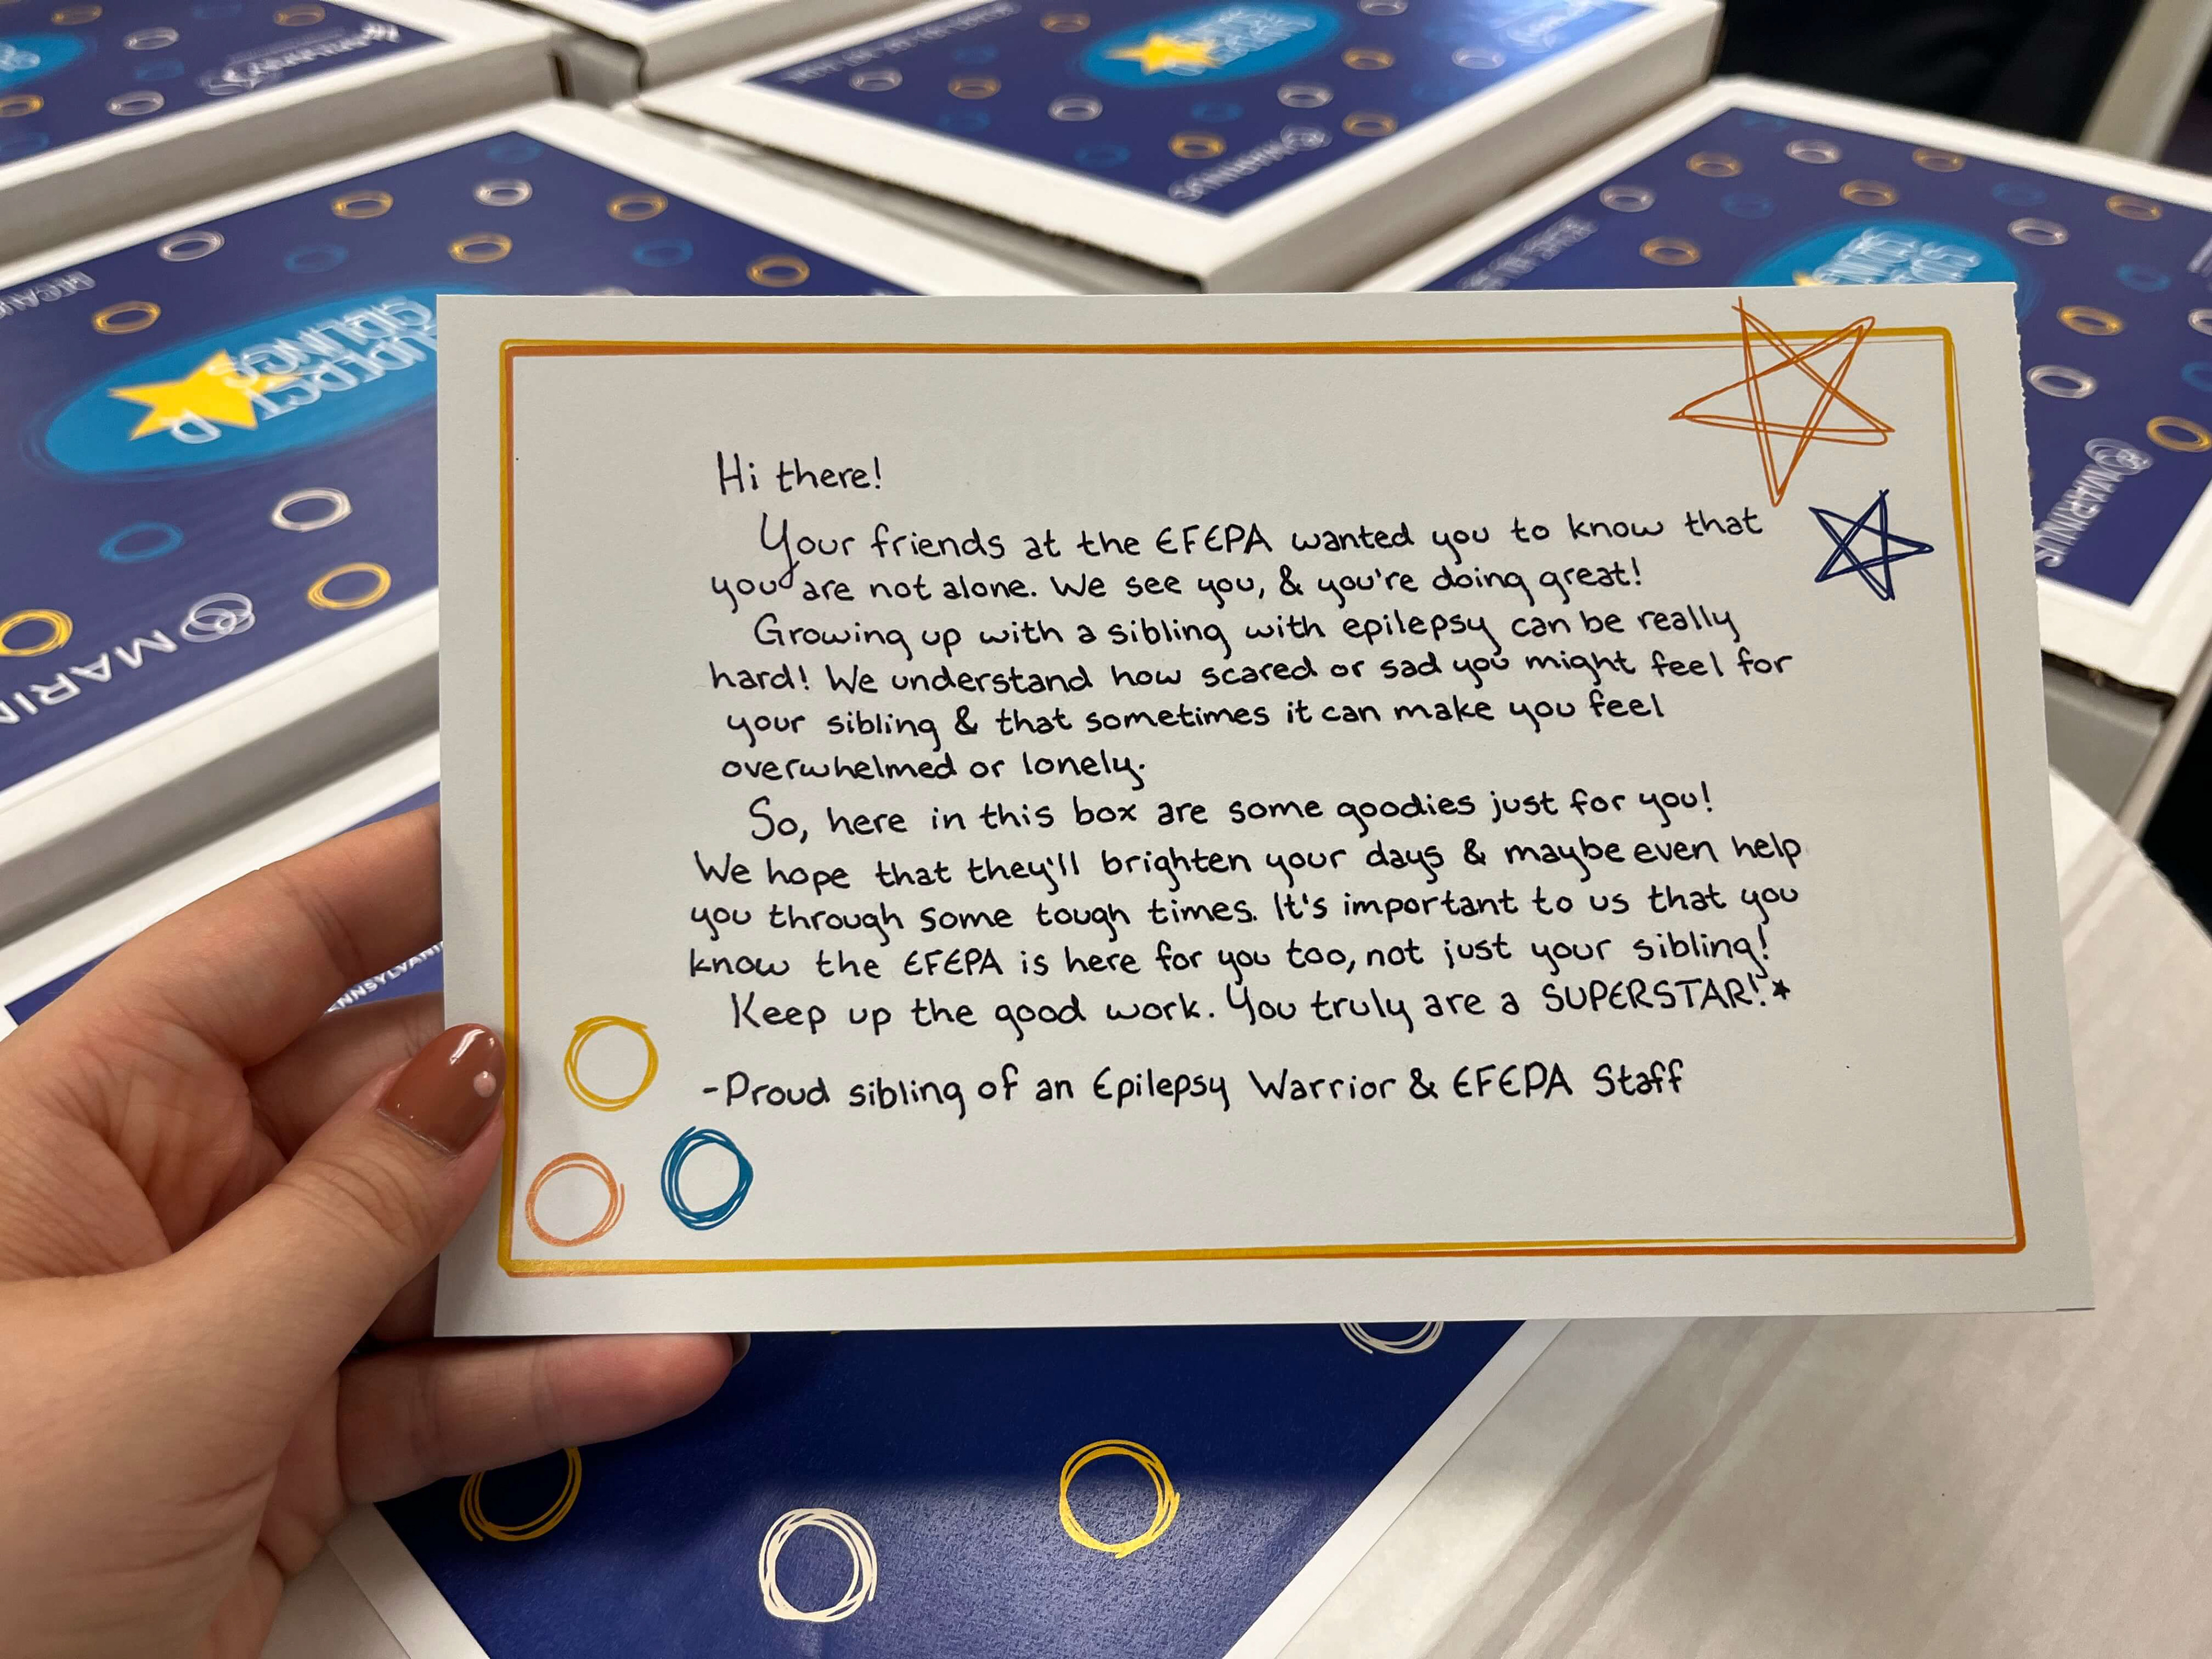 Hi there!
Your friends at the EFEPA wanted you to know that
you are not alone. We see you, & you're doing great!
Growing up with a sibling with epilepsy can be really
hard! We understand how scared or sad you might feel for
your sibling & that sometimes it can make you feel
overwhelmed or lonely.
So, here in this box are some goodies just for you!
We hope that they'll brighten your days & maybe even help
you through some tough times. It's important to us that you
know the EFEPA is here for you too, not just your sibling!
Keep up the good work. You truly are a SUPERSTAR!
-Proud sibling of an Epilepsy Warrior & EFEPA Staff
SUPERSTAR
SIBLINGS
MARINUS
MARINUS